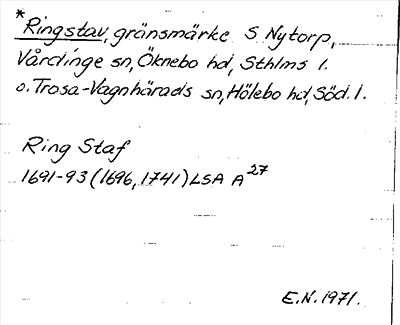 *Ringstav, gränsmärke S Nytorp,
Vårdinge sn, Öknebo hd, Sthlms l.
o. Trosa-Vagnhärads sn, Hölebo hd, Söd. l.
Ring Staf
1691-93 (1696, 1741) LSA A 27
E.N. 1971.